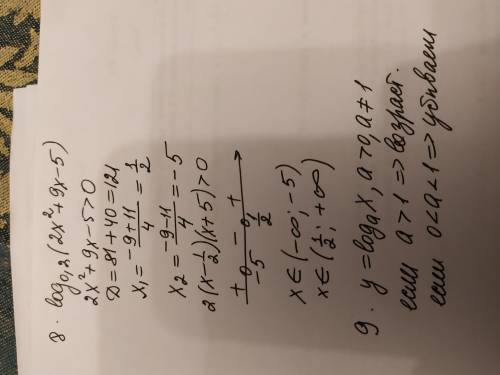 8. log₀,₂(2x²+9x-5)
2x²+9x-5>0
D=81+40=121
x₁=(-9+11)/4=1/2
x₂=(-9-11)/4=-5
2(x-1/2)(x+5)>0
+ - +
-5 1/2
x∈(-∞;-5)
x∈(1/2;+∞)
9. y=logₐx, a>0, a≠1
если a>1=>возраст.
если 0<a<1=>убывает